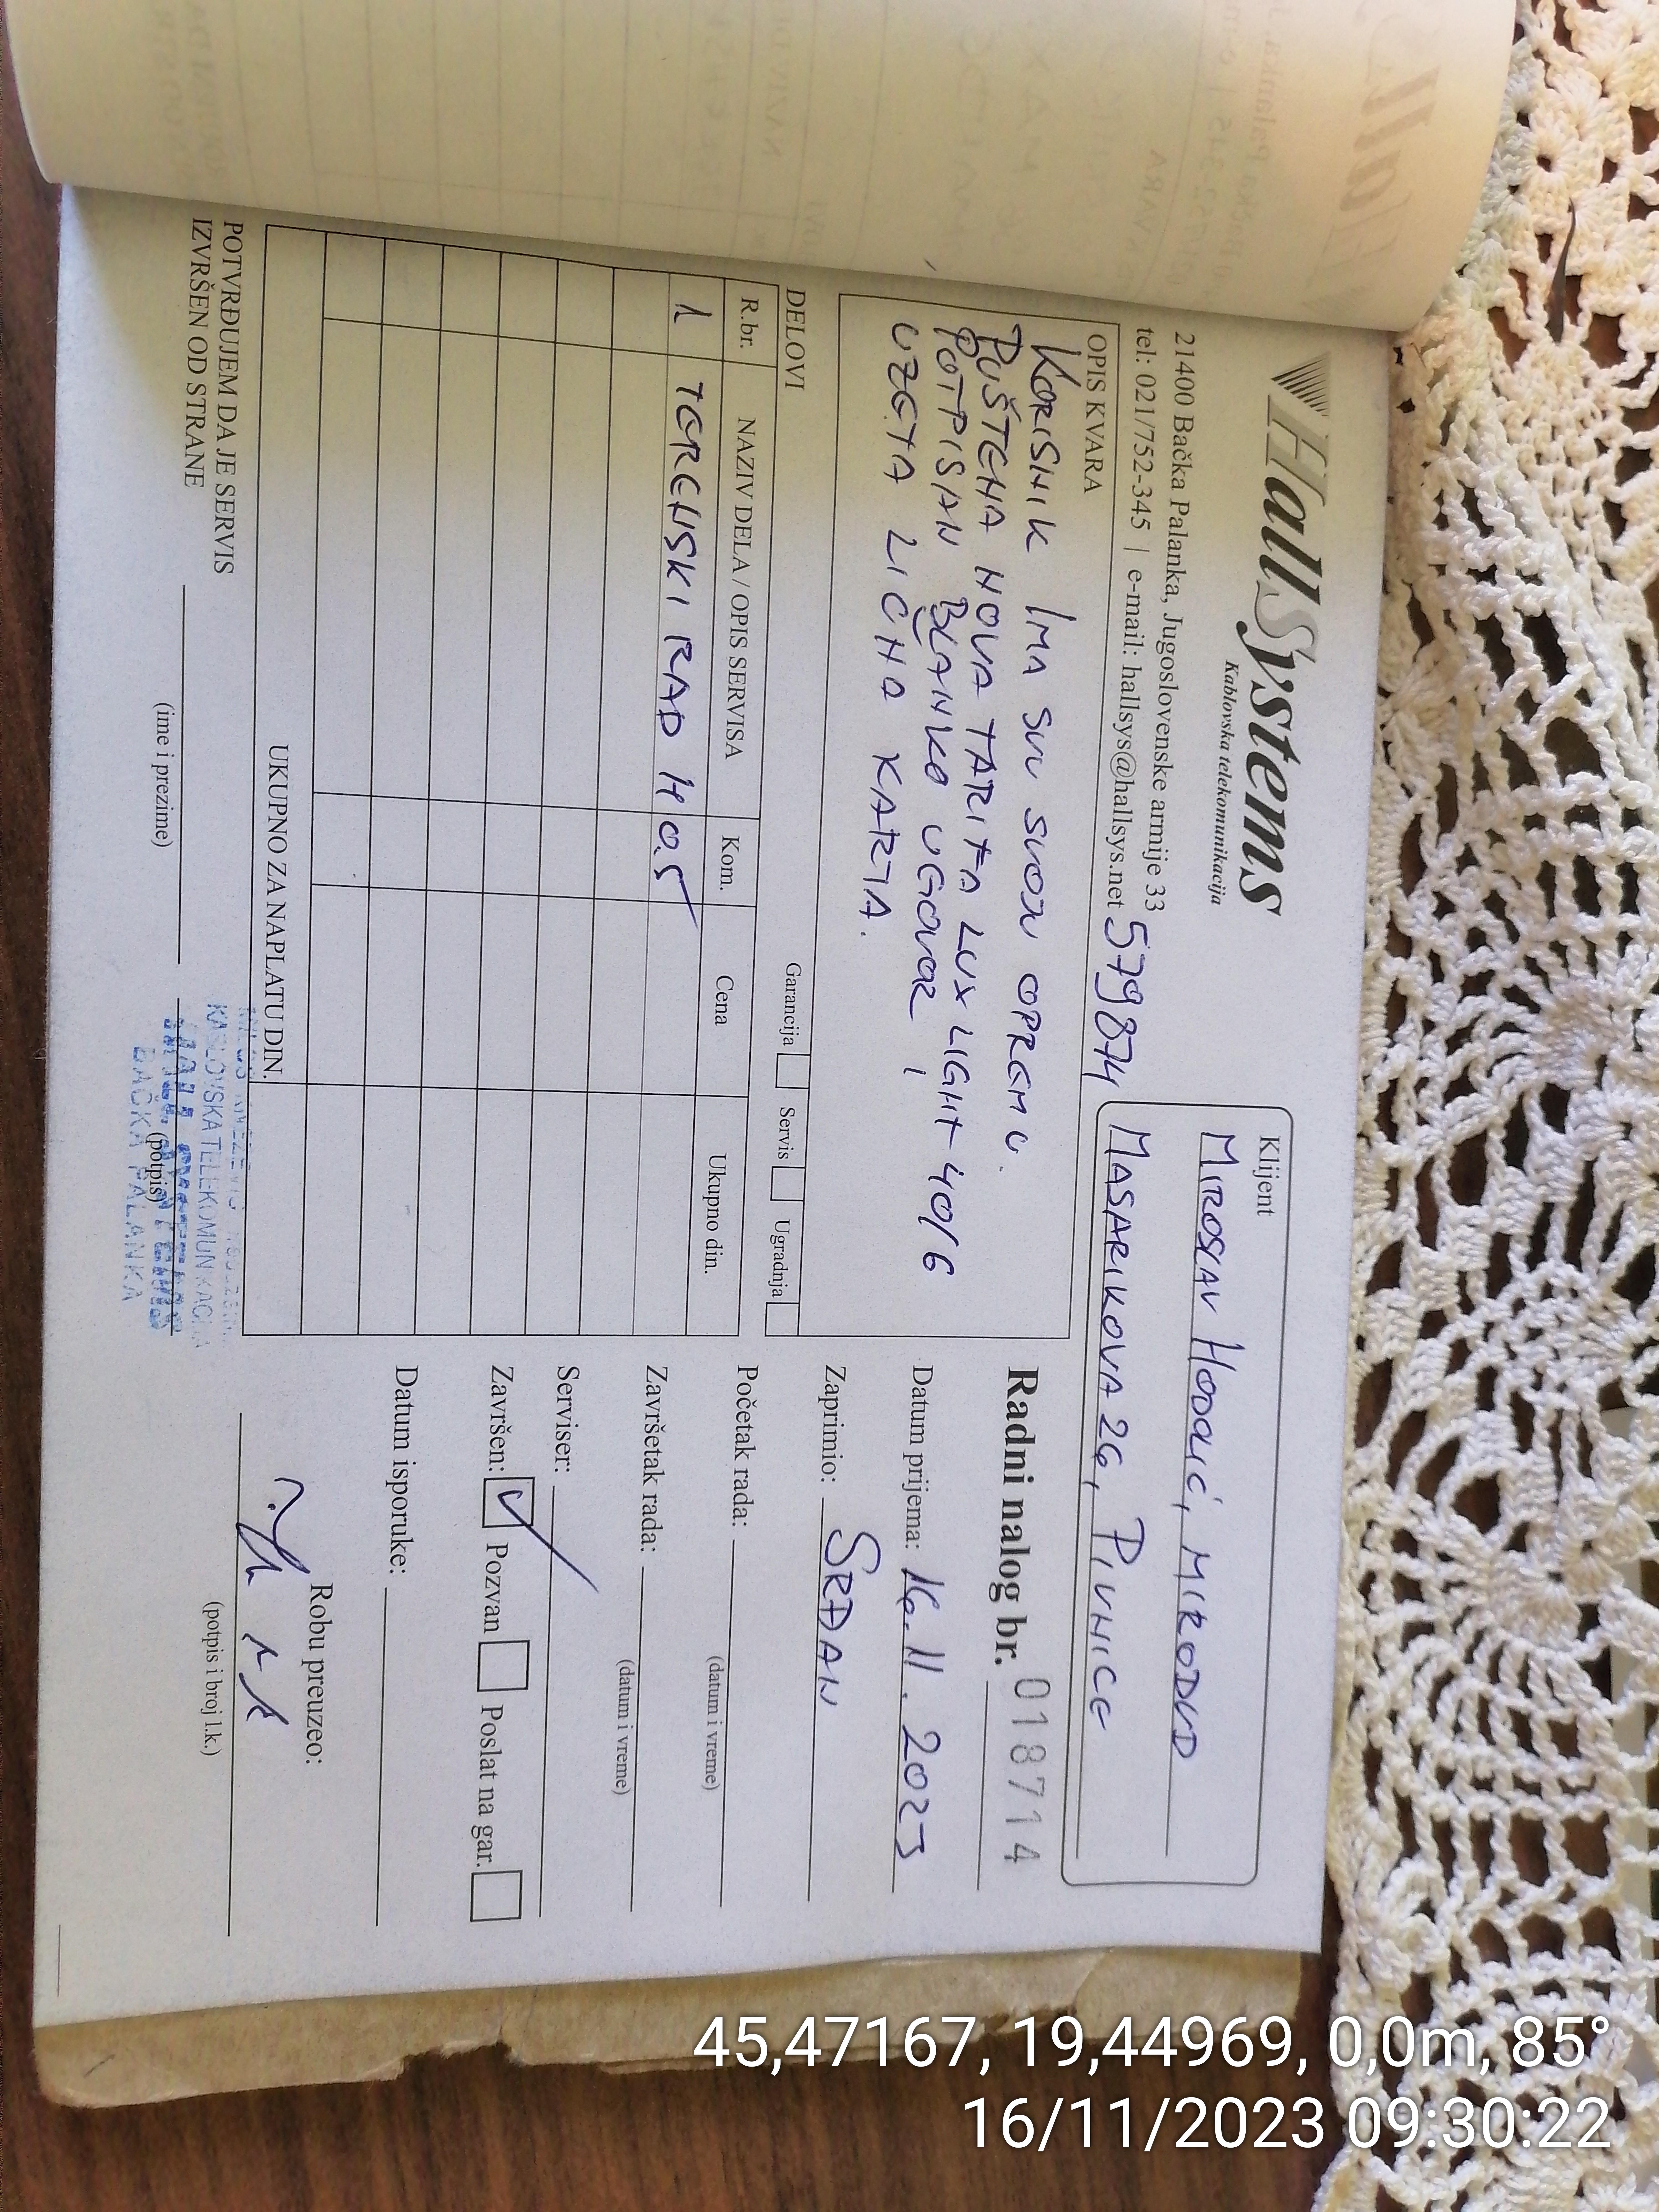 HallSystems
Kablovska telekomunikacija
21400 Bačka Palanka, Jugoslovenske armije 33
tel: 021/752-345 | e-mail: hallsys@hallsys.net
579874
Klijent
MIROSLAV HODOLIĆ, MIRODUD
MASARIKOVA 26, PIVNICE
OPIS KVARA
KORISNIK IMA SVU SVOJU OPREMU.
PUŠTENA NOVA TARIFA LUX LIGHT 40/6
POTPISAN BLANKO UGOVOR I
UZETA LIČNA KARTA.
Radni nalog br. 018714
Datum prijema: 16.11.2023
Zaprimio: SRĐAN
Početak rada:
(datum i vreme)
Završetak rada:
(datum i vreme)
Serviser:
Završen: Pozvan Poslat na gar.
Datum isporuke:
Robu preuzeo:
(potpis i broj l.k.)
DELOVI
Garancija Servis Ugradnja
R.br. NAZIV DELA / OPIS SERVISA Kom. Cena Ukupno din.
1 TERENSKI RAD H 0.5
UKUPNO ZA NAPLATU DIN.
POTVRĐUJEM DA JE SERVIS
IZVRŠEN OD STRANE
(ime i prezime)
(potpis)
KABLOVSKA TELEKOMUNIKACIJA
HALL SYSTEMS
BAČKA PALANKA
45,47167, 19,44969, 0,0m, 85°
16/11/2023 09:30:22